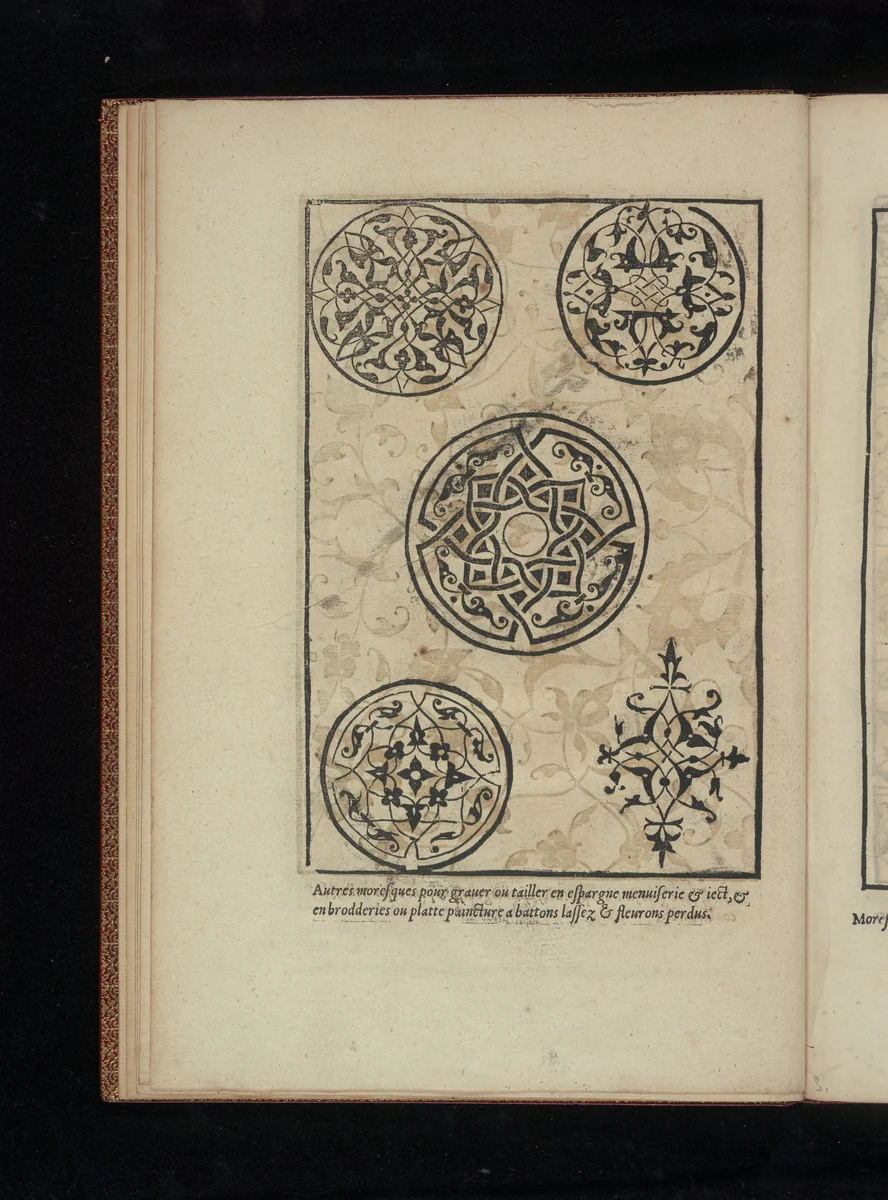 Autres moresques pour grauer ou tailler en espargne menuiserie & iect, &
en brodderies ou platte paincture a battons lassez & fleurons perdus.
Mores
2.